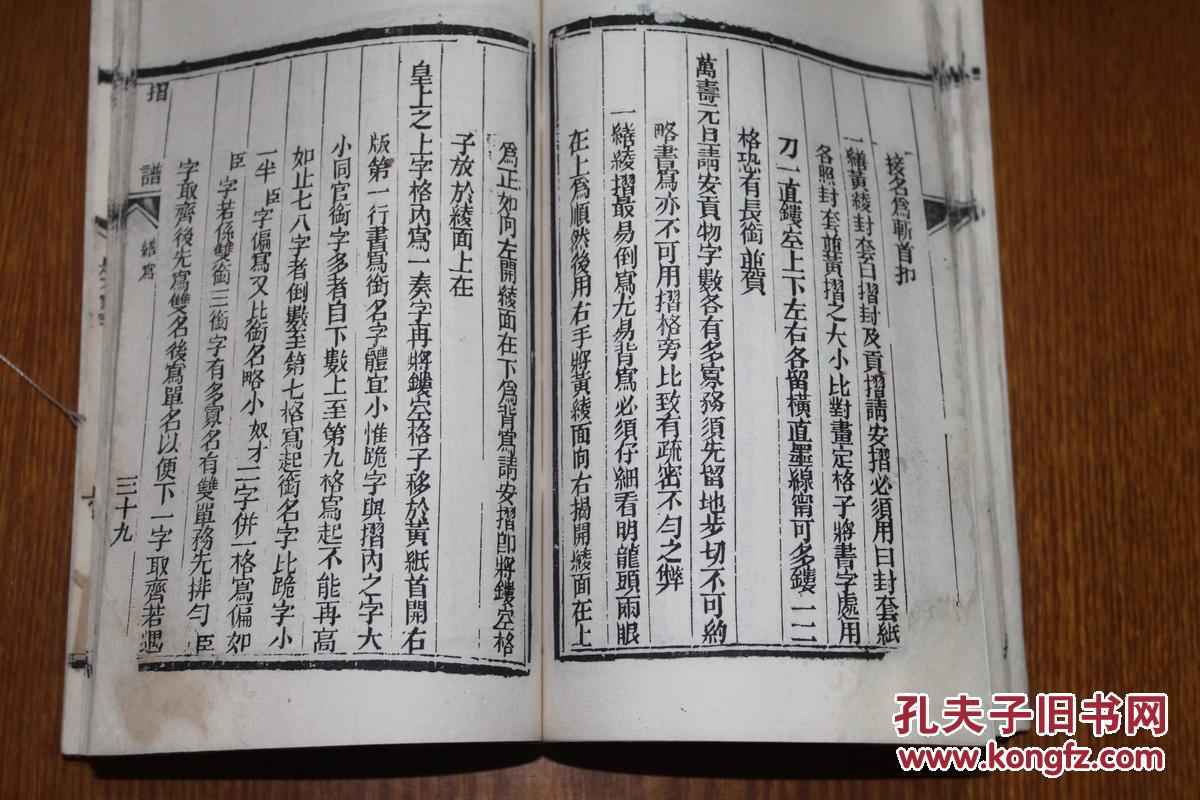 接名爲斬首扣
一繕黃綾封套白摺封及貢摺請安摺必須用白封套紙
各照封套並黃摺之大小比對畫定格子將書字處用
刀一直鏤空上下左右各留橫直墨線甯可多鏤一二
格恐有長銜並賀
萬壽元旦請安貢物字數各有多寡務須先留地步切不可約
略書寫亦不可用摺格旁比致有疏密不勻之弊
一繕綾摺最易倒寫尤易背寫必須仔細看明龍頭兩眼
在上爲順然後用右手將黃綾面向右揭開綾面在上
爲正如向左開綾面在下爲背寫請安摺卽將鏤空格
子放於綾面上在
皇上之上字格內寫一奏字再將鏤空格子移於黃紙首開右
版第一行書寫銜名字體宜小惟跪字與摺內之字大
小同官銜字多者自下數上至第九格寫起不能再高
如止七八字者倒數至第七格寫起銜名字比跪字小
一半臣字偏寫又比銜名略小奴才二字併一格寫偏如
臣字若係雙銜三銜字有多寡名有雙單務先排勻臣
字取齊後先寫雙名後寫單名以便下一字取齊若遇
摺譜
繕寫
三十九
孔夫子旧书网
www.kongfz.com